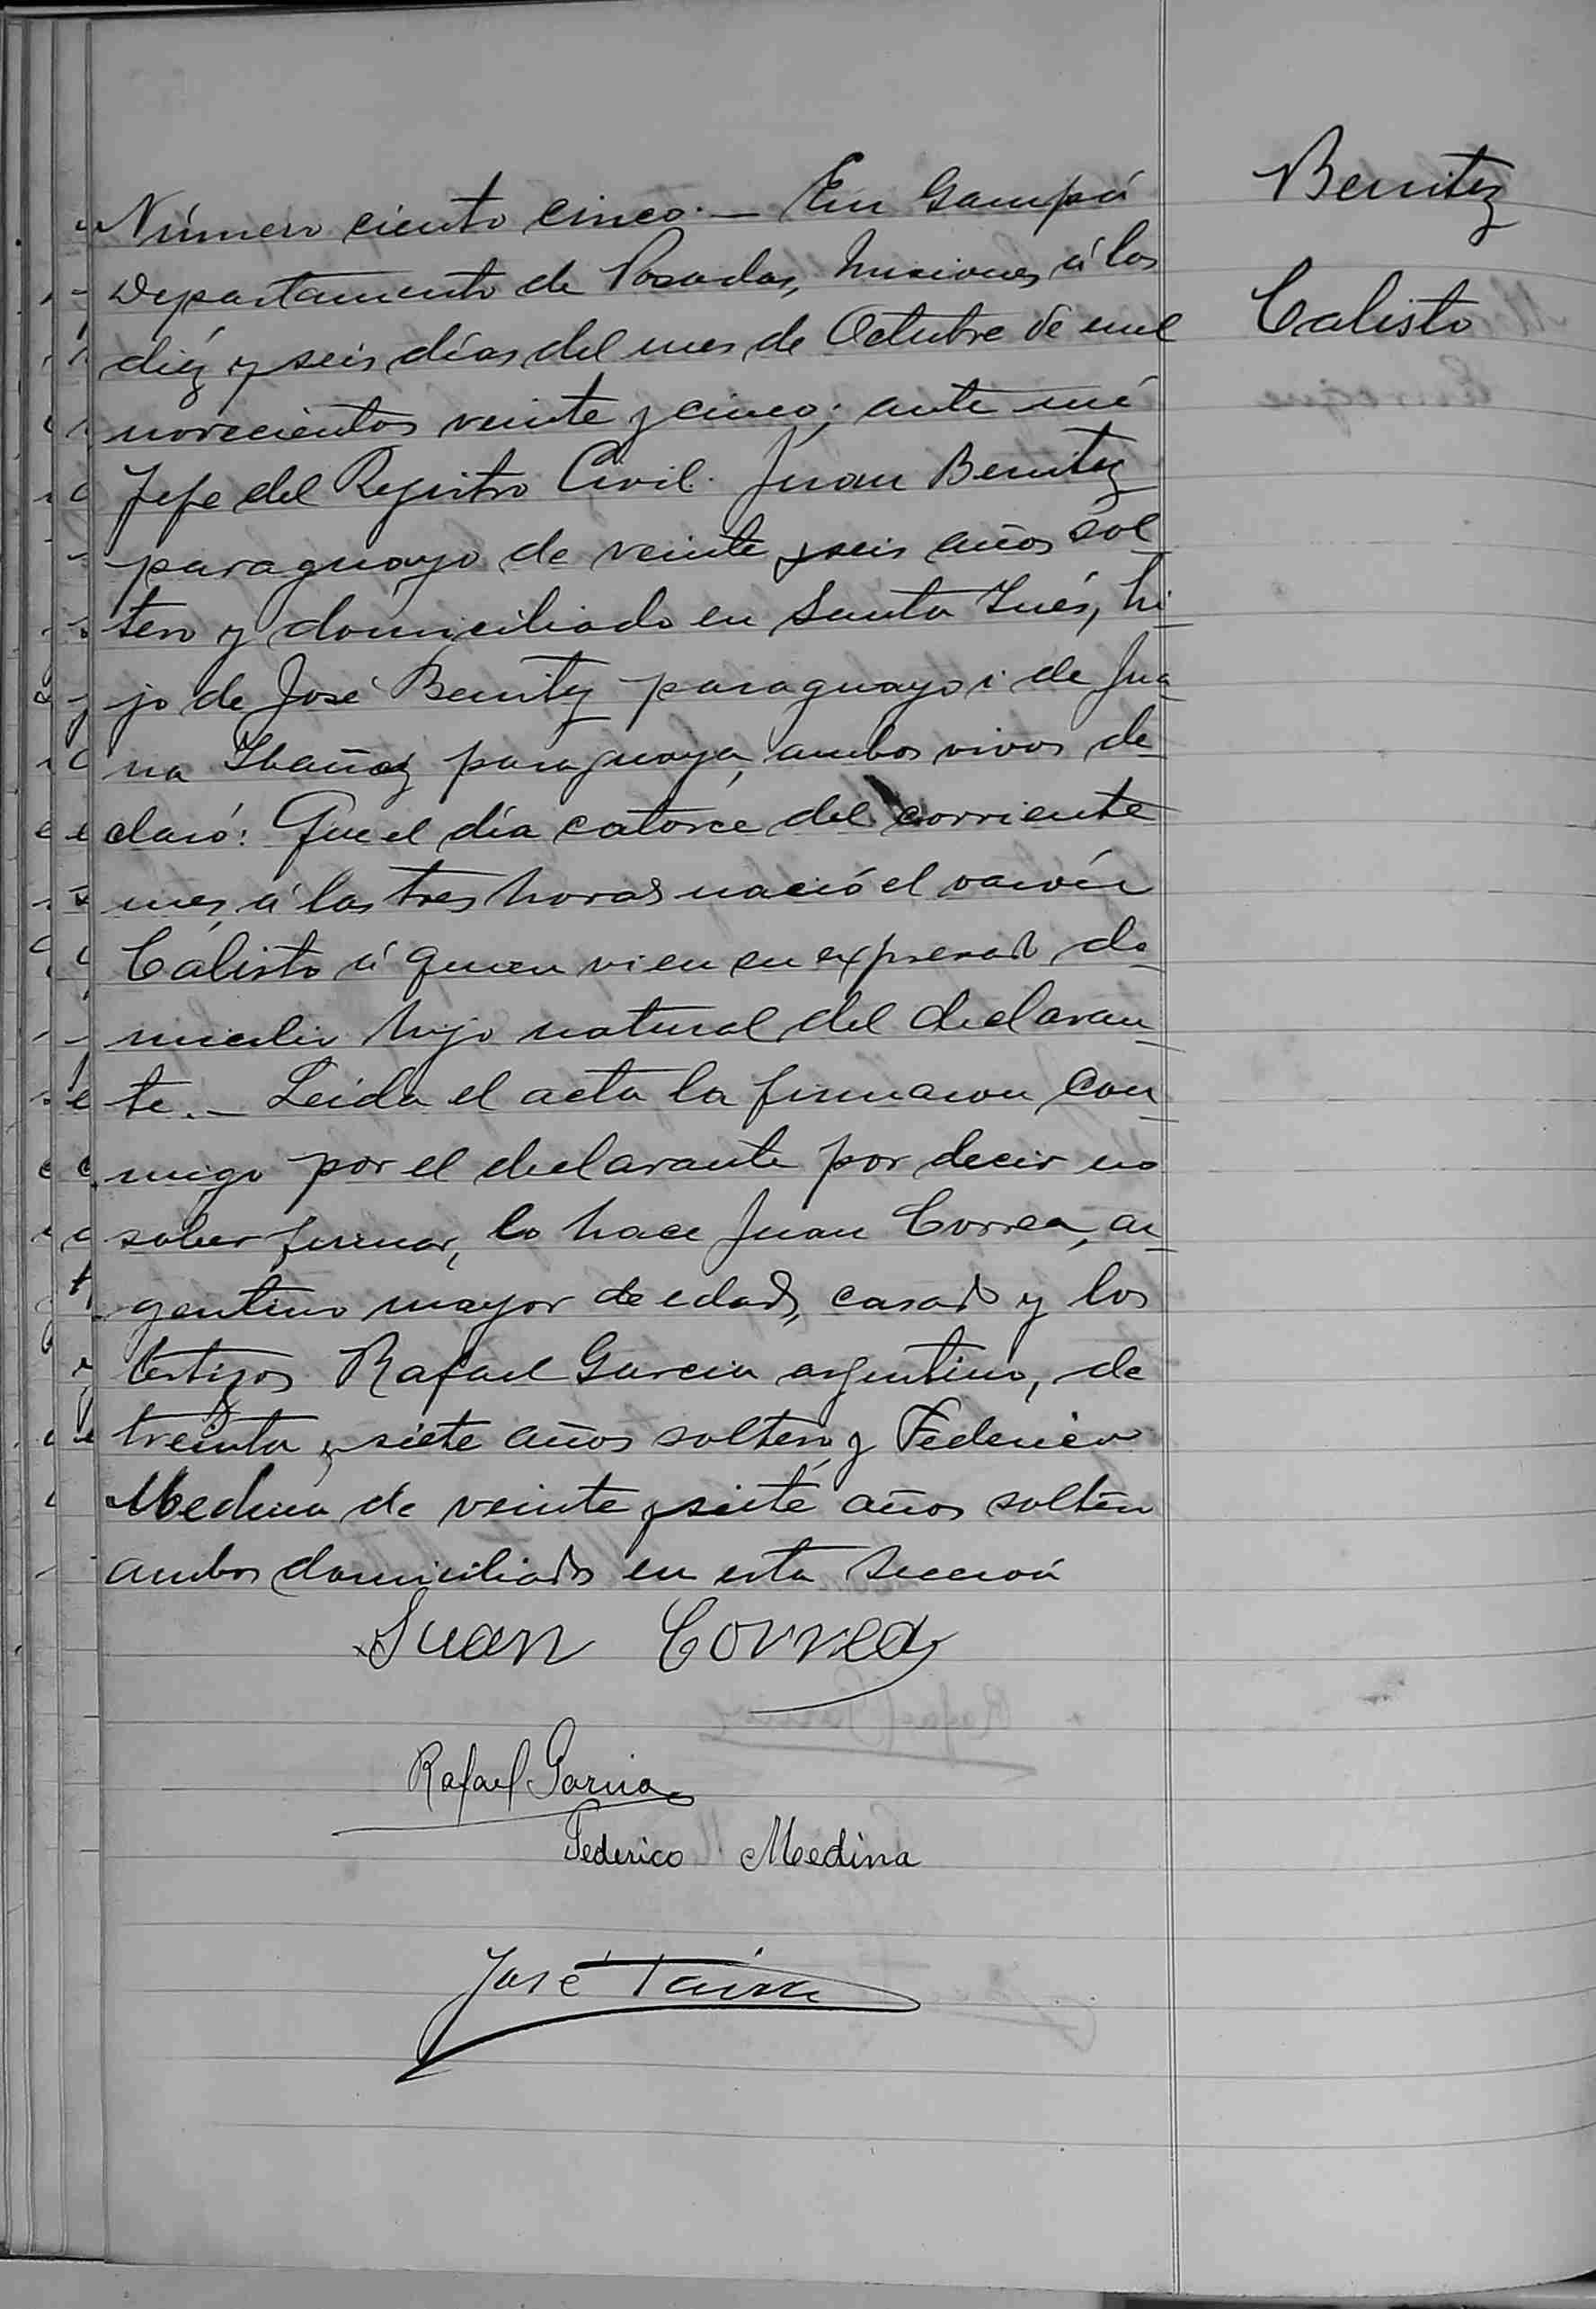 Benitez
Calisto
Número ciento cinco.— En Garupá
Departamento de Posadas, Misiones, á los
diéz y seis días del mes de Octubre de mil
novecientos veinte y cinco; ante mí
Jefe del Registro Civil. Juan Benitez
paraguayo de veinte y seis años sol-
tero y domiciliado en Santa Inés, hi-
jo de José Benitez paraguayo i de Jua-
na Ibañez paraguaya, ambos vivos de-
claró: Que el día catorce del corriente
mes, á las tres horas nació el varón
Calisto á quien vi en su expresado do-
micilio hijo natural del declaran-
te.— Leida el acta la firmaron con-
migo por el declarante por decir no
saber firmar, lo hace Juan Correa, ar-
gentino mayor de edad, casado y los
testigos Rafael Garcia argentino, de
treinta y siete años soltero y Federico
Medina de veinte y siete años soltero
ambos domiciliados en esta Sección
Juan Correa
Rafael Garcia
Federico Medina
José